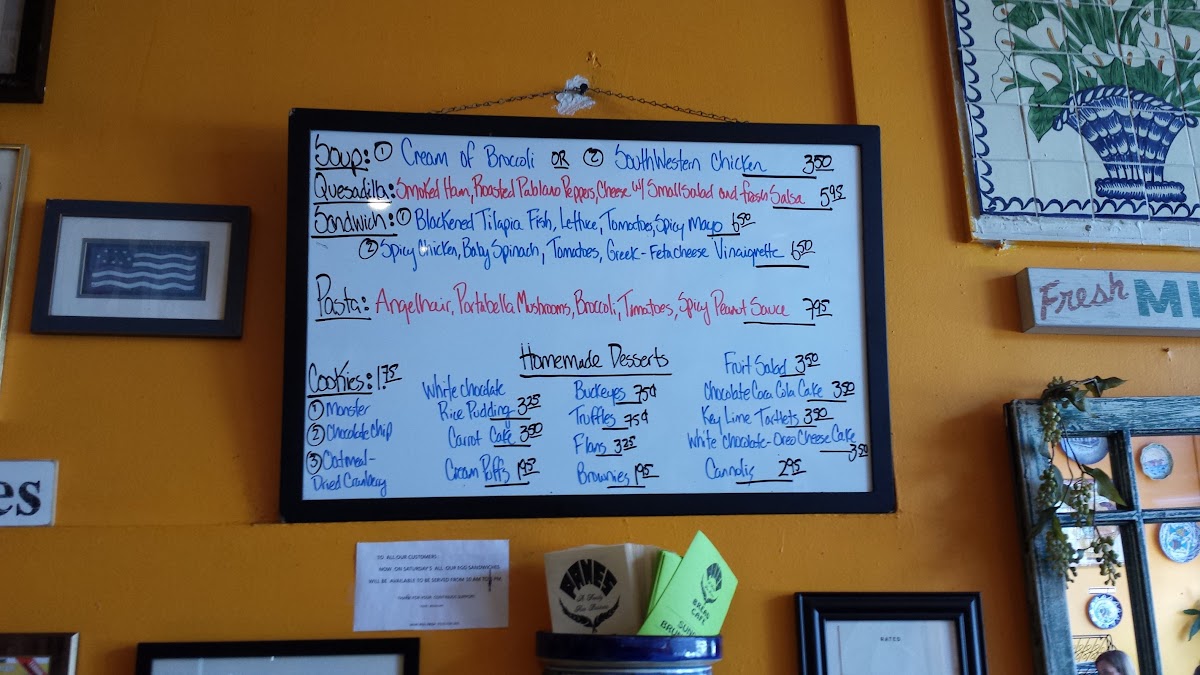 Soup: ① Cream of Broccoli OR ② SouthWestern Chicken 3.50
Quesadilla: Smoked Ham, Roasted Pablano Peppers, Cheese w/ Small Salad and fresh Salsa 5.95
Sandwich: ① Blackened Tilapia Fish, Lettuce, Tomatoes, Spicy Mayo 6.50
② Spicy Chicken, Baby Spinach, Tomatoes, Greek-Feta cheese Vinaigrette 6.50
Pasta: Angelhair, Portabella Mushrooms, Broccoli, Tomatoes, Spicy Peanut Sauce 7.95
Cookies: 1.75
① Monster
② Chocolate chip
③ Oatmeal-
Dried Cranberry
Homemade Desserts
White chocolate
Rice Pudding 3.25
Carrot Cake 3.50
Cream Puffs 1.95
Buckeyes 75¢
Truffles 75¢
Flans 3.25
Brownies 1.95
Fruit Salad 3.50
Chocolate Coca Cola Cake 3.50
Key Lime Tartlets 3.50
White chocolate-Oreo Cheese Cake
3.50
Cannolis 2.95
Fresh
es
TO ALL OUR CUSTOMERS
NOW ON SATURDAY'S ALL OUR EGG SANDWICHES
WILL BE AVAILABLE TO BE SERVED FROM
PANES
BREAD
CAFE